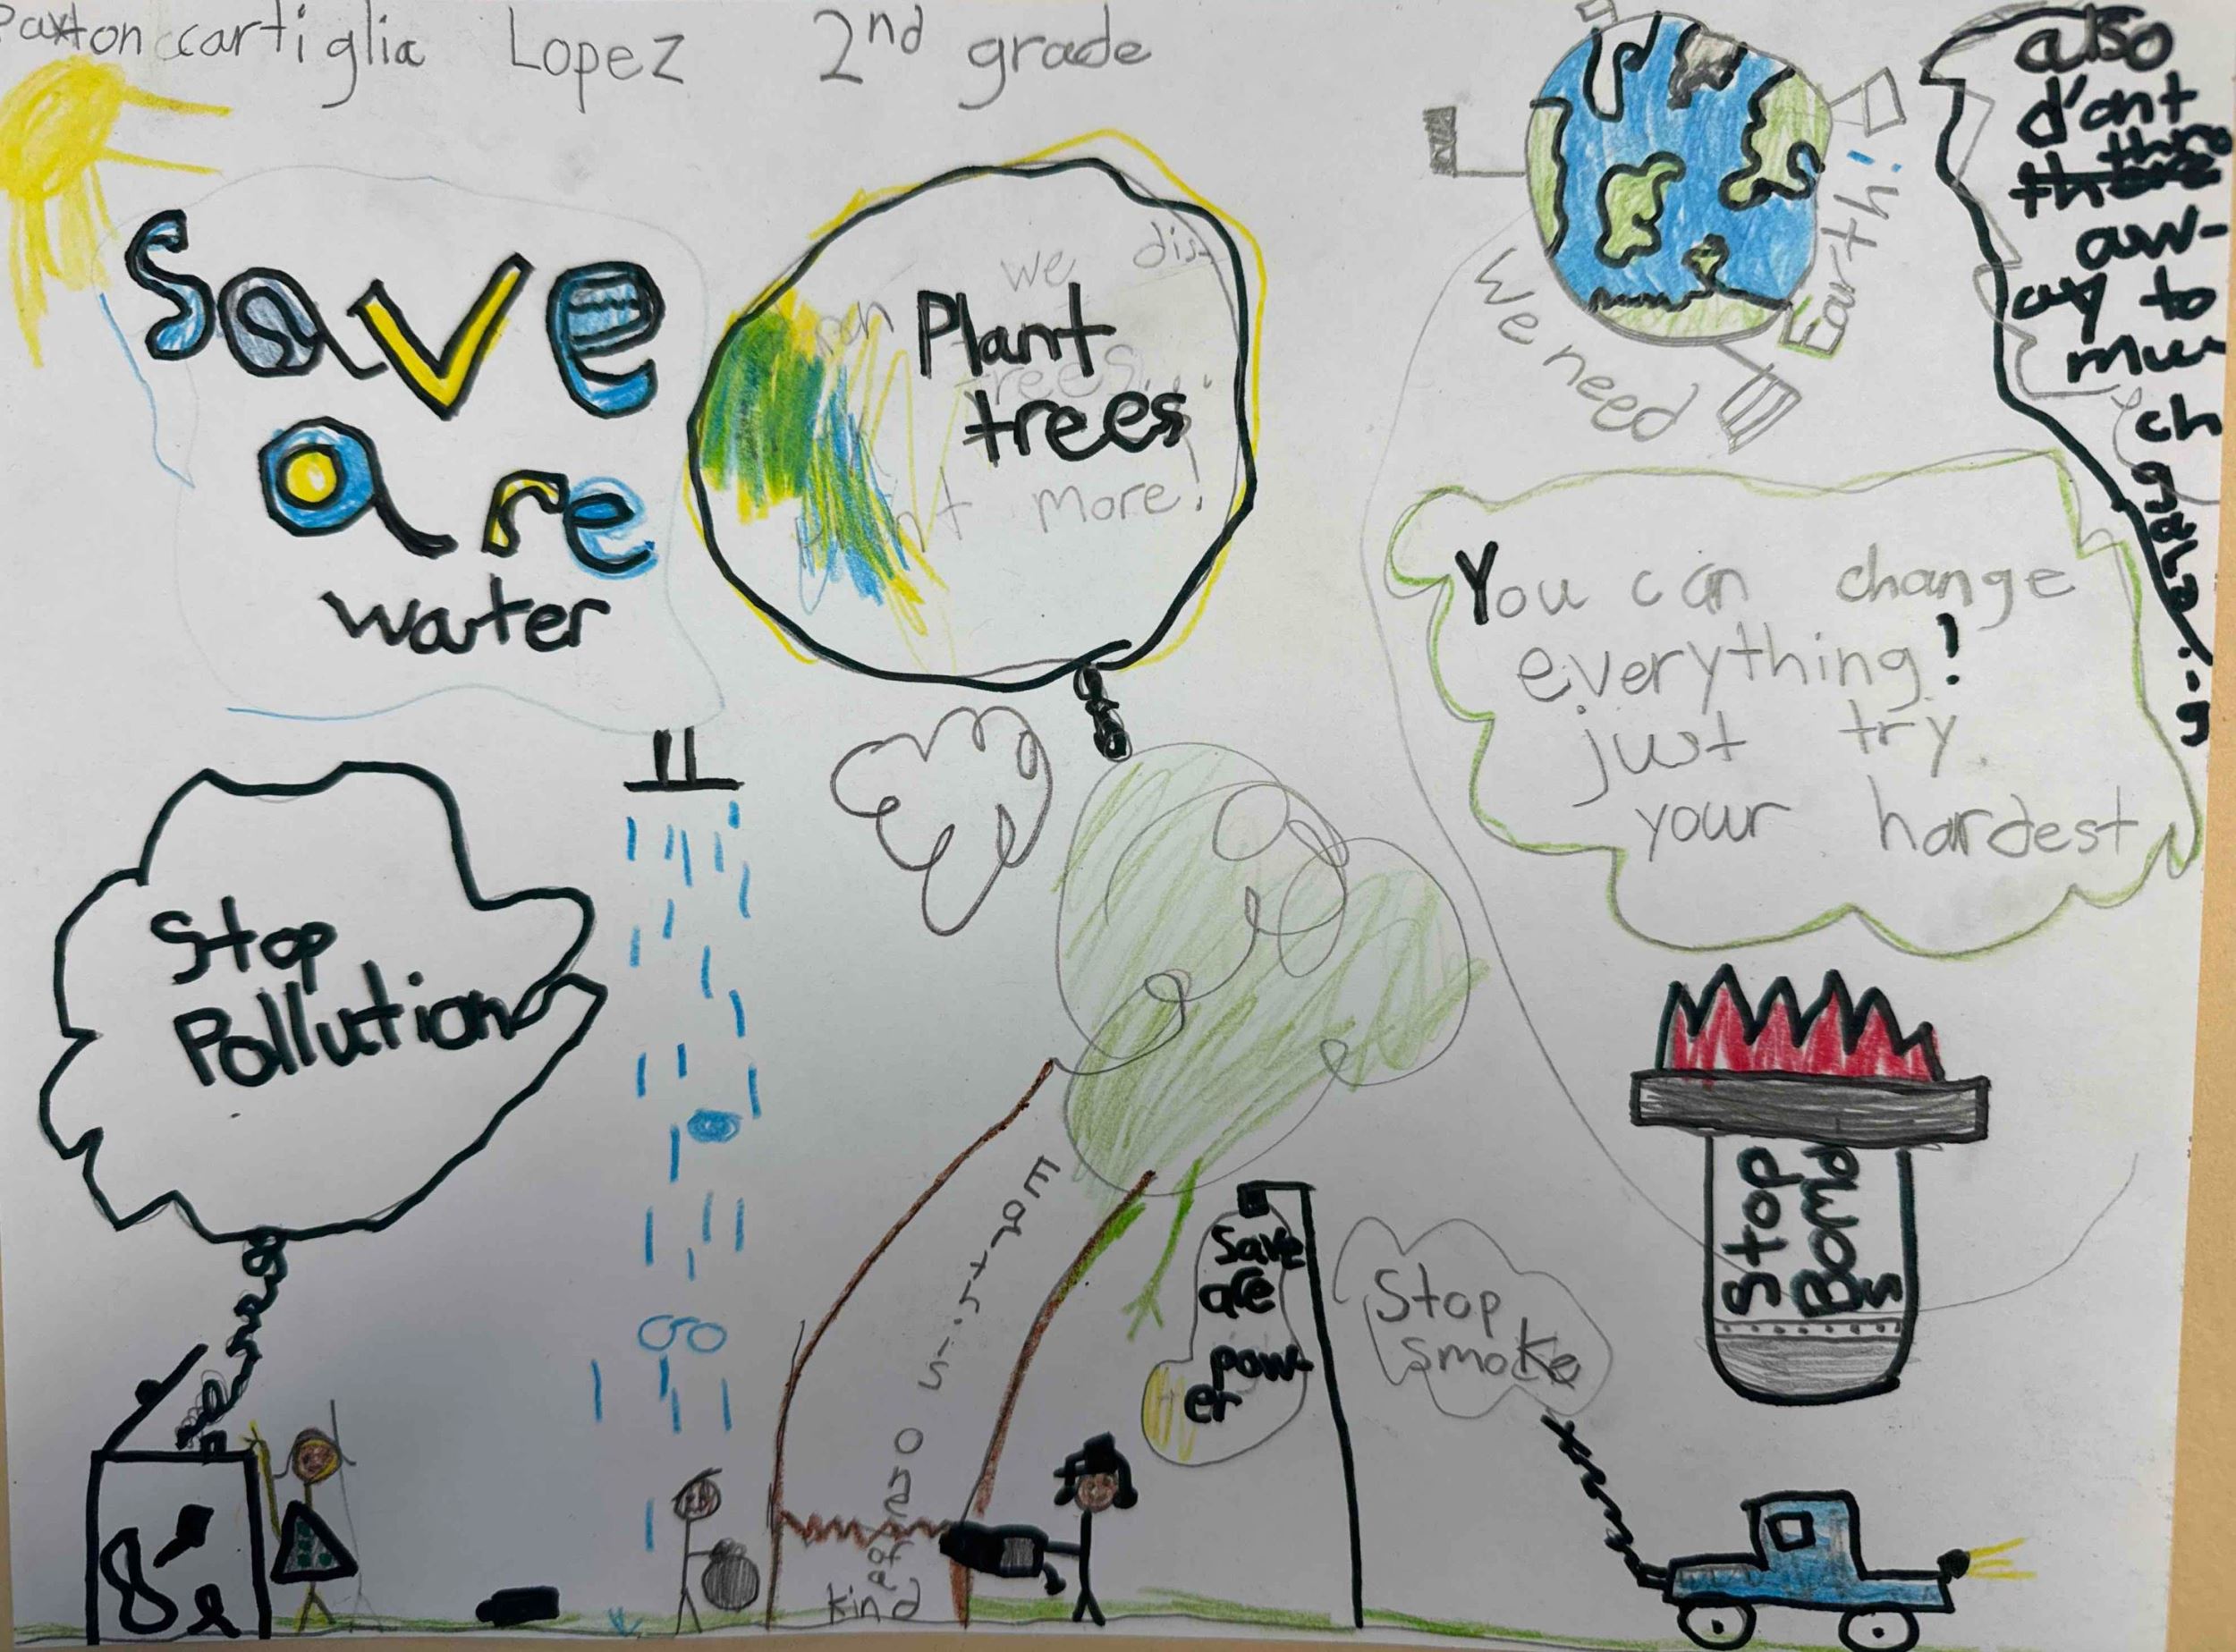 Paxton cartiglia Lopez 2nd grade
Save
are
water
Plant
trees
we dis
trees...
more!
We need
Earth!
also
d'ont
thro
aw-
ay to
mu
ch
You can change
everything!
just try
your hardest
Stop
Pollution
Save
are
pow-
er
Stop
smoke
Stop
Bomb
s
Earth is
one of a
kind